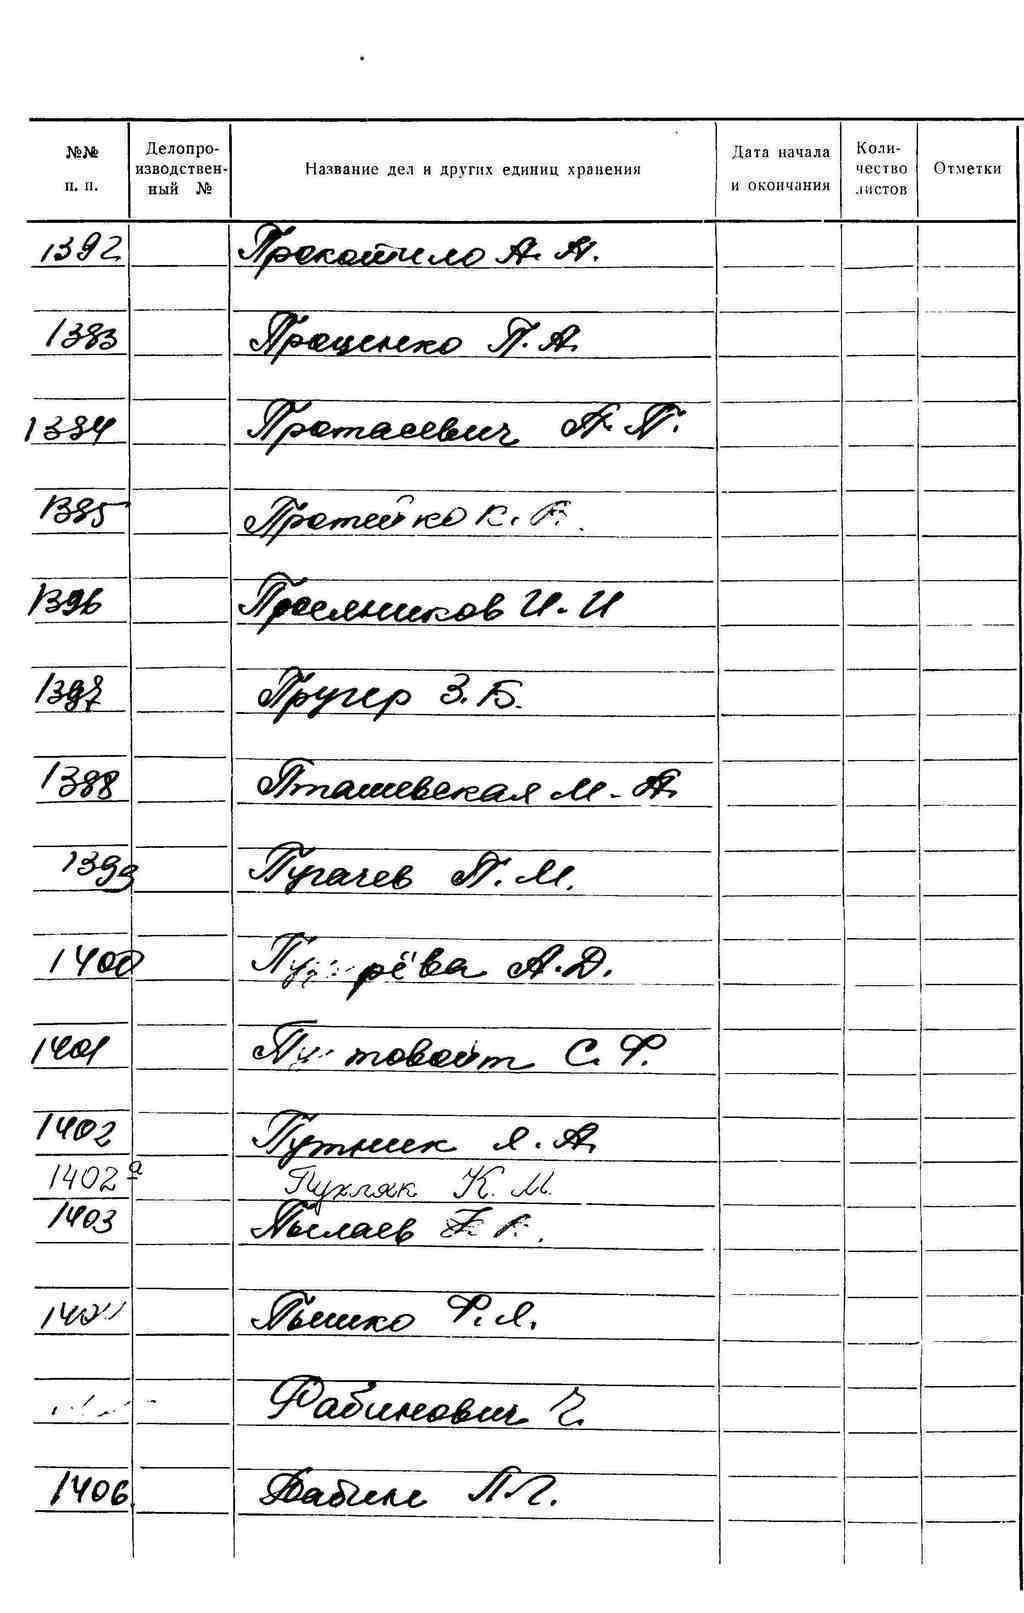 №№ п. п. Делопроизводственный № Название дел и других единиц хранения Дата начала и окончания Количество листов Отметки
1392 Прокопило А. Н.
1393 Проценко П. А.
1394 Протасевич А. П.
1395 Протейко К.
1396 Проемников И. И
1397 Пругер З. Б.
1398 Пташевская М. А.
1399 Пугачев П. М.
1400 А. Д.
1401 Пустовойт С. Ф.
1402 Путник Я. А.
1402а Пухляк К. М.
1403 Пылаев
1404 Пышко Ф. Я.
Рабинович Г.
1406 П. Г.